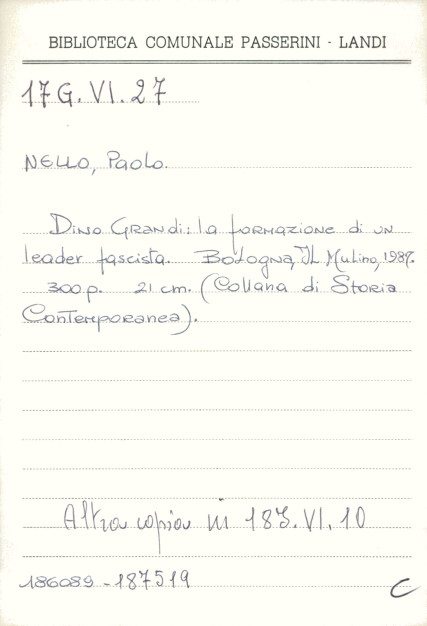 BIBLIOTECA COMUNALE PASSERINI - LANDI
17 G. VI. 27
NELLO, Paolo.
Dino Grandi: la formazione di un
leader fascista. Bologna, Il Mulino, 1987.
300 p. 21 cm. (Collana di Storia
Contemporanea).
Altra copia in 183. VI. 10
186089 - 187519
C